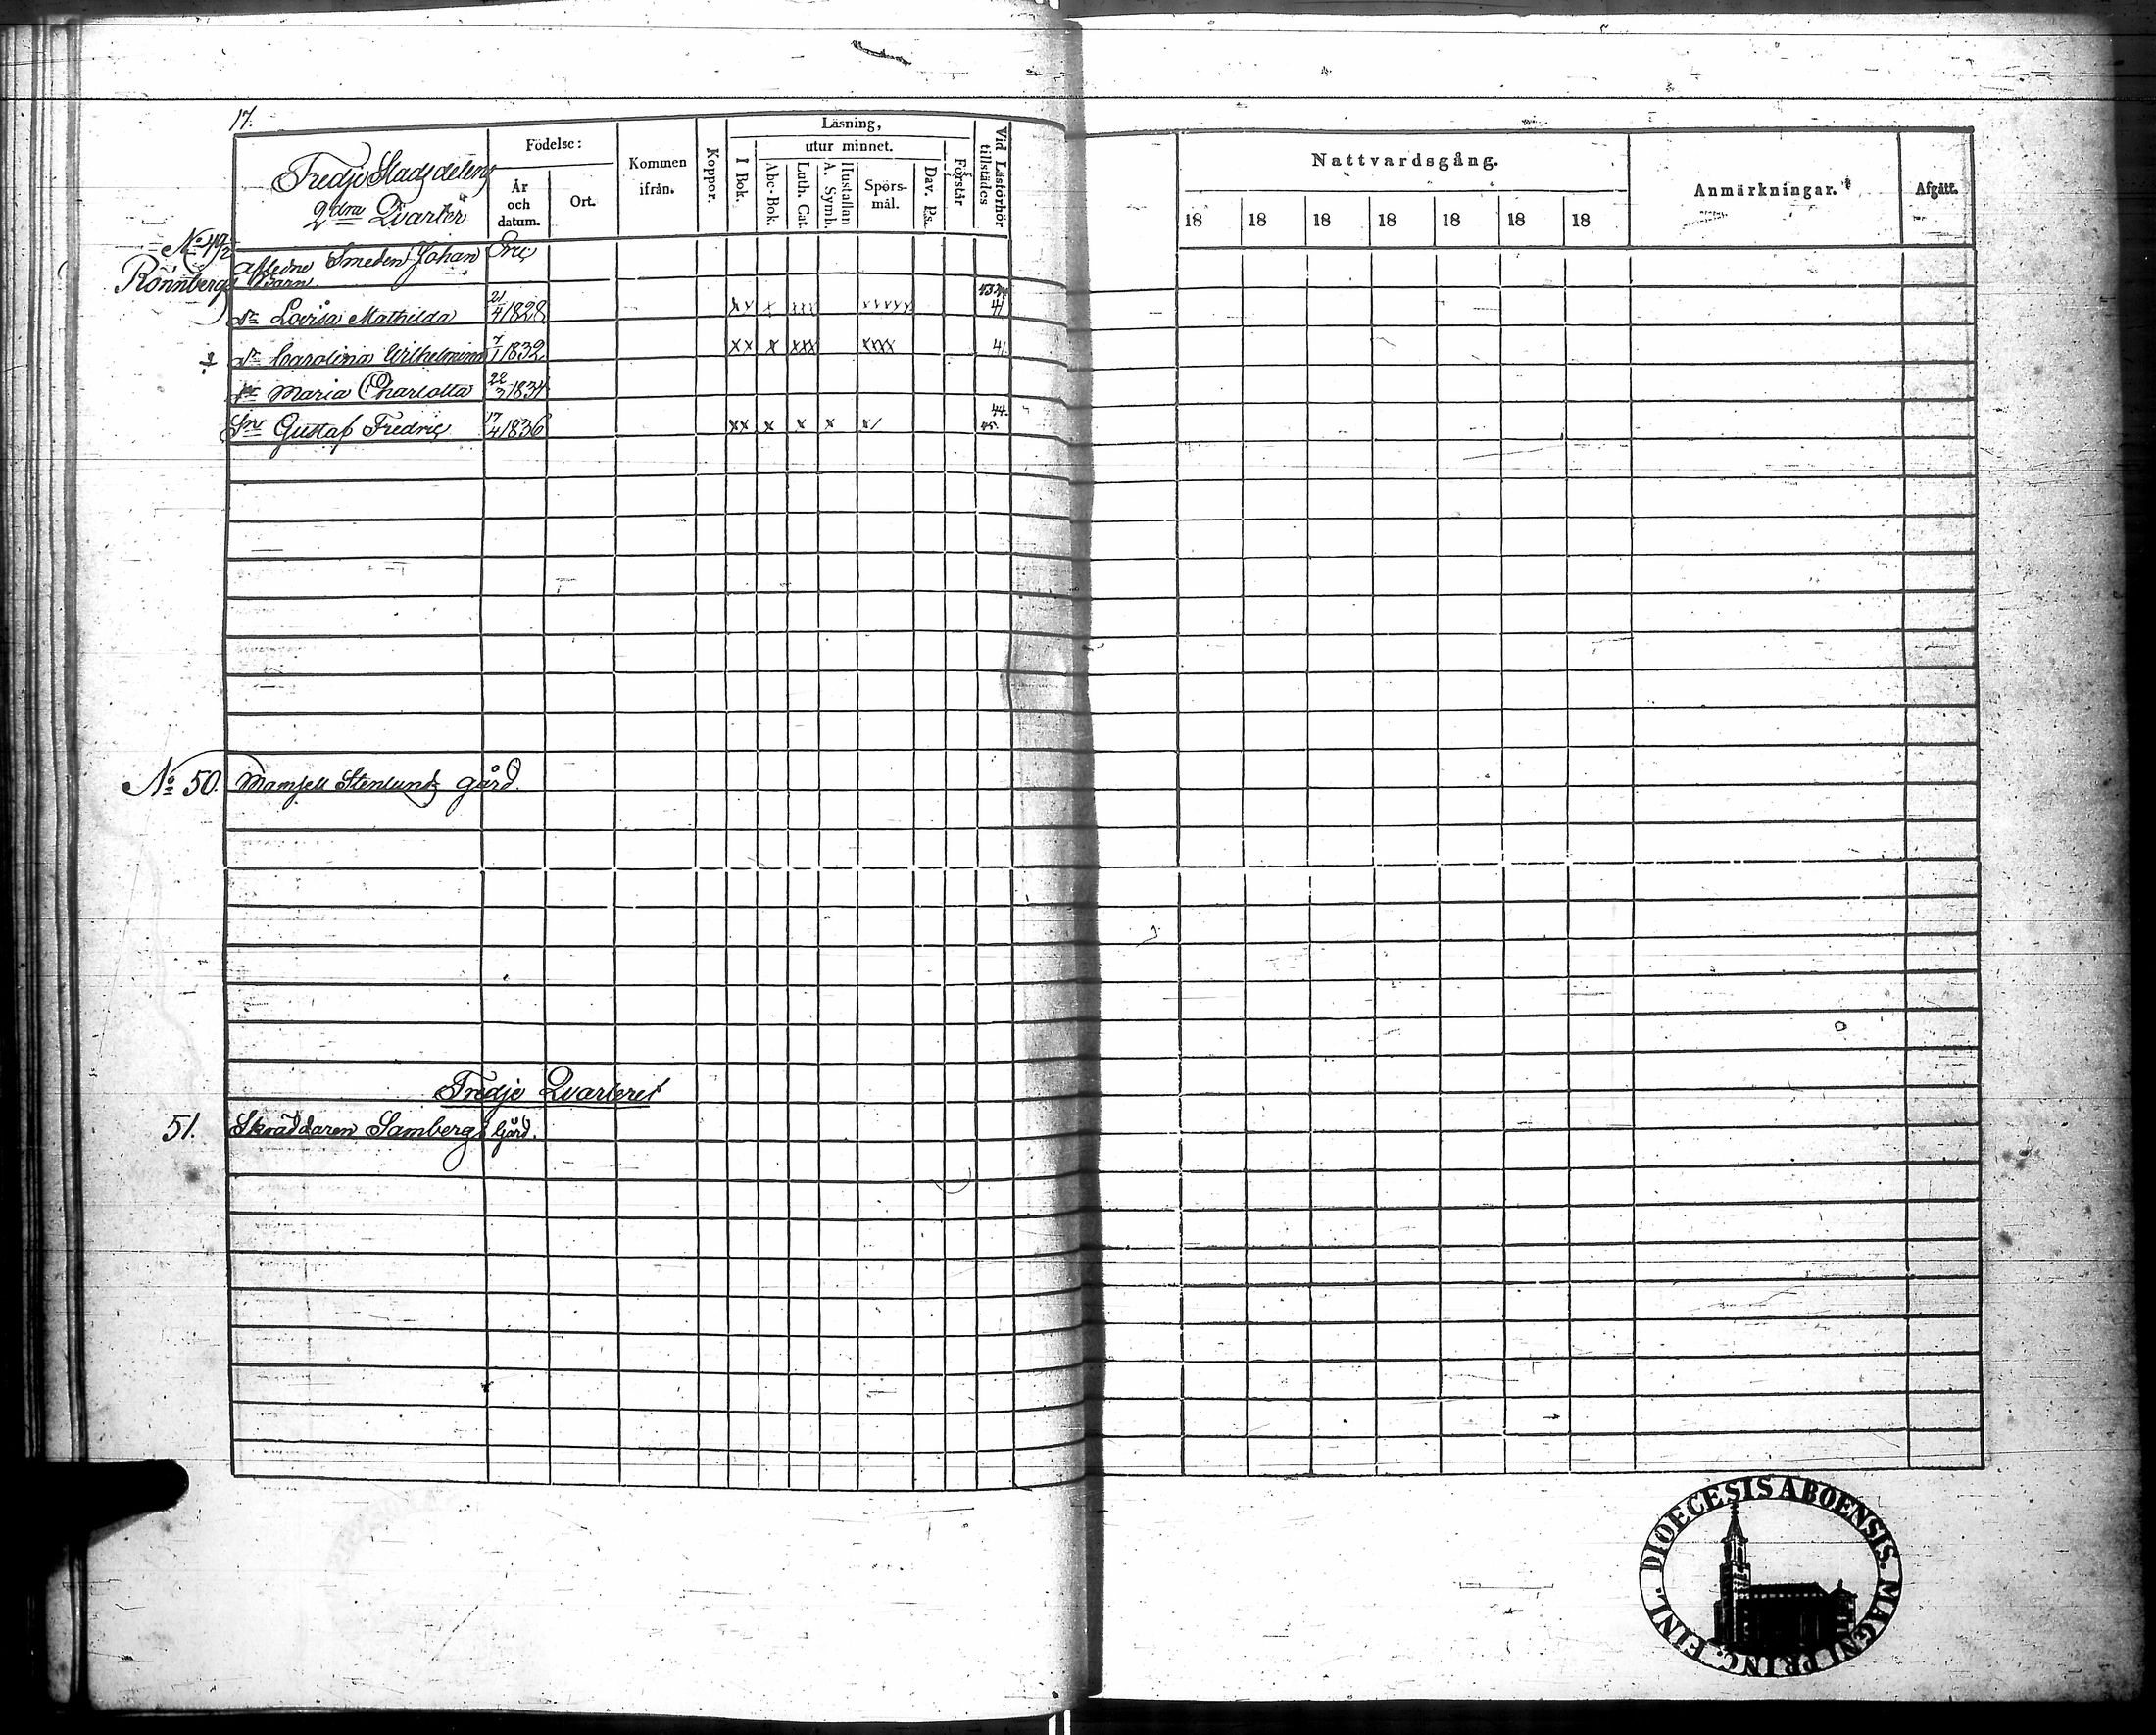 17.
Tredje Stadsdelens
2dra Qvarter
Födelse:
År och datum.
Ort.
Kommen ifrån.
Koppor.
Läsning,
I Bok.
utur minnet.
Abc-Bok.
Luth. Cat.
Hustaflan A. Symb.
Spörsmål.
Dav. Ps.
Förstår
Vid Läsförhör tillstädes
Nattvardsgång.
18 18 18 18 18 18 18
Anmärkningar.
Afgått.
No 49/2
Aflidne Smeden Johan Eric
Rönnbergs Barn
dr Lovisa Mathilda 21/4 1828 xx x xxx xxxxx 43. 44 41
dr Carolina Wilhelmina 7/1 1832 xx x xxx xxxx 41
dr Maria Charlotta 22/3 1834
Sne Gustaf Fredric 17/4 1836 xx x x x x/ 44. 45.
No 50. Mamsell Stenlunds gård.
Tredje Qvarteret
51. Skräddaren Sambergs Gård.
DIOECESIS ABOENSIS. MAGNI PRINC. FINL.